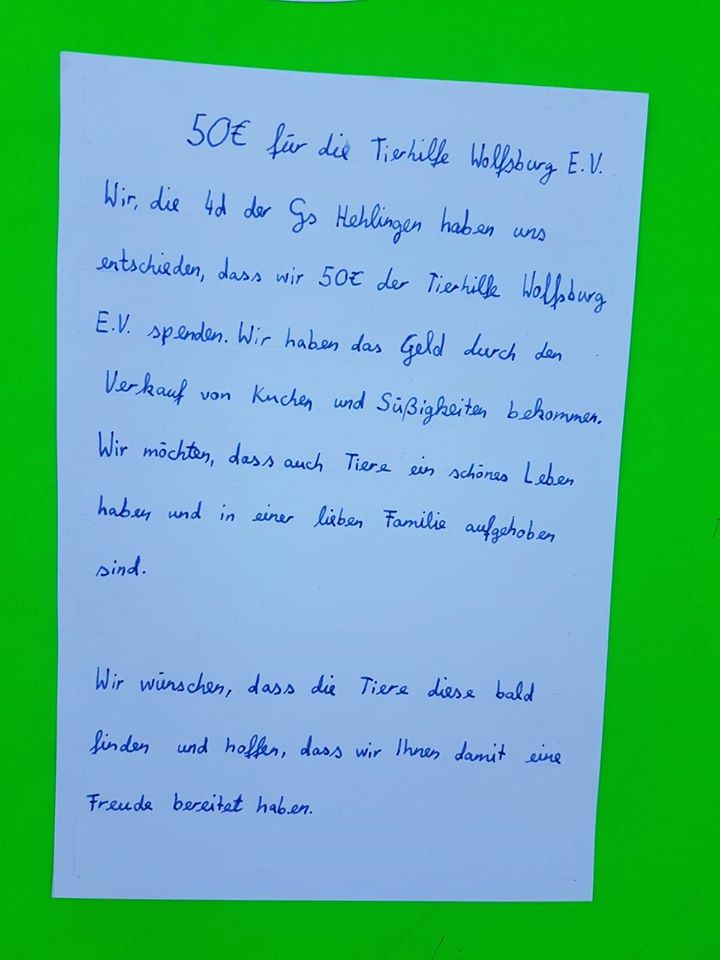 50€ für die Tierhilfe Wolfsburg E.V.
Wir, die 4d der Gs Hehlingen haben uns
entschieden, dass wir 50€ der Tierhilfe Wolfsburg
E.V. spenden. Wir haben das Geld durch den
Verkauf von Kuchen und Süßigkeiten bekommen.
Wir möchten, dass auch Tiere ein schönes Leben
haben und in einer lieben Familie aufgehoben
sind.
Wir wünschen, dass die Tiere diese bald
finden und hoffen, dass wir Ihnen damit eine
Freude bereitet haben.